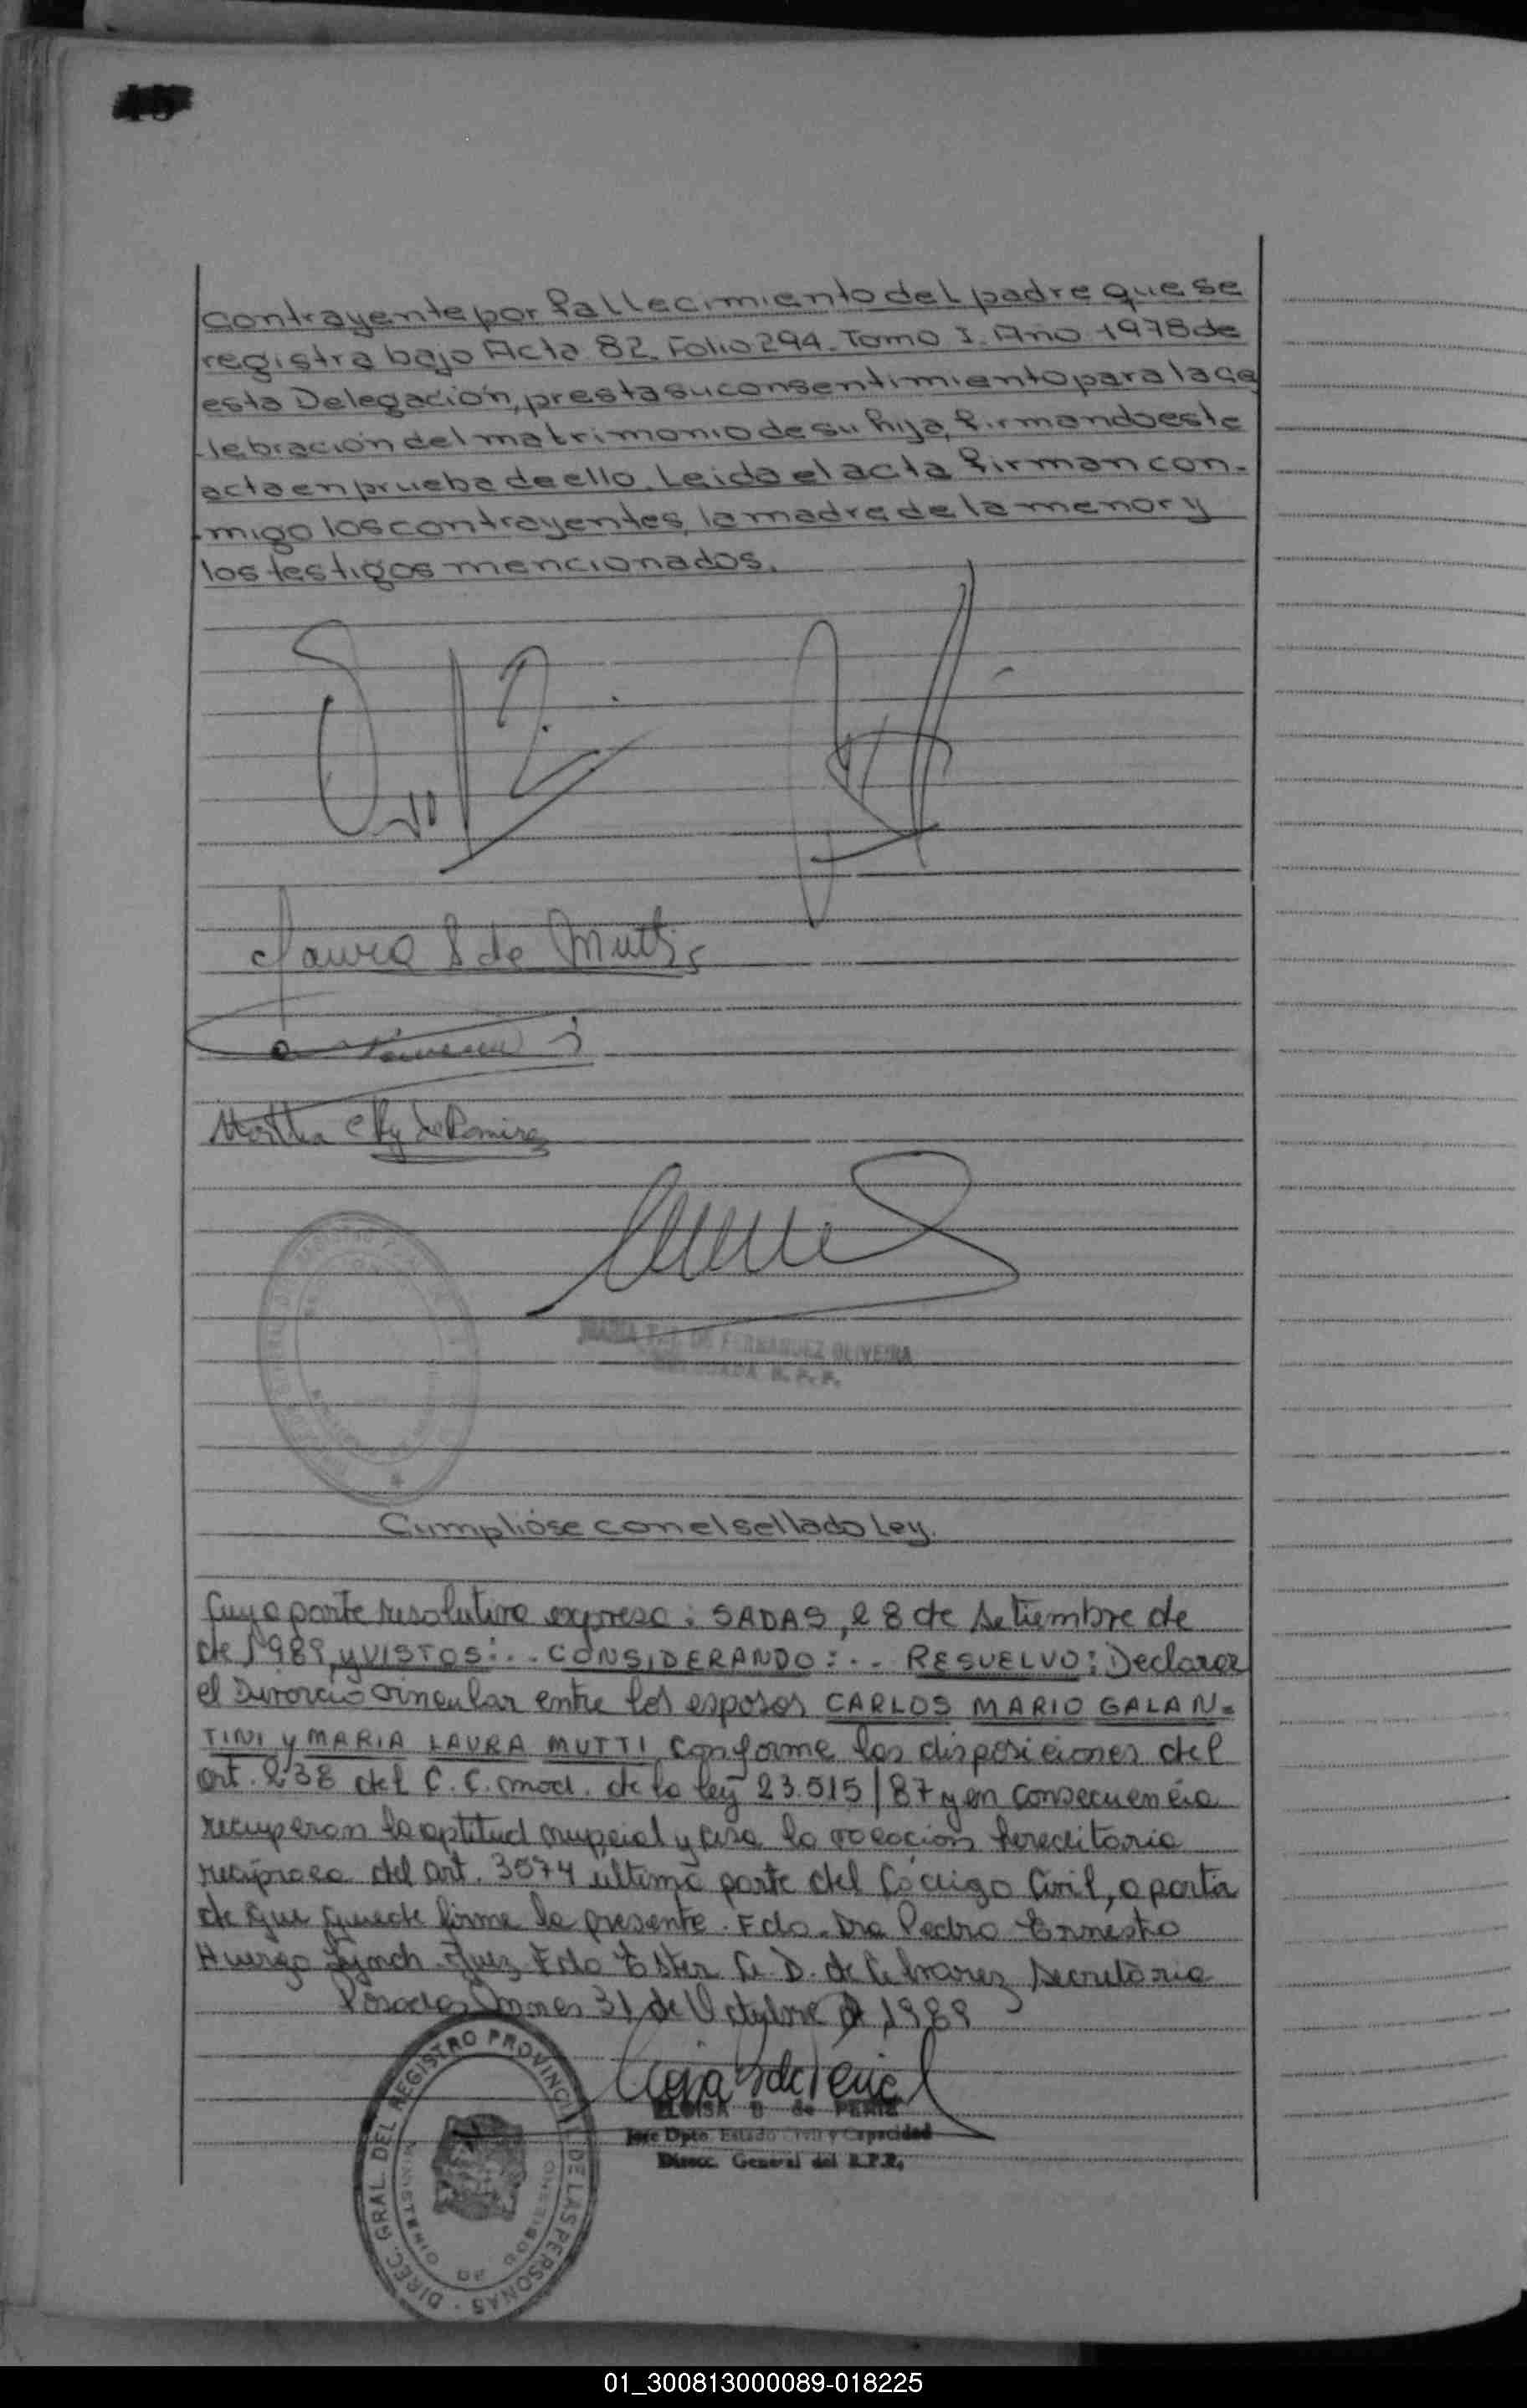 contrayente por fallecimiento del padre que se
registra bajo Acta 82. Folio 294. Tomo I. Año 1978 de
esta Delegación, presta su consentimiento para la ce
lebración del matrimonio de su hija, firmando este
acta en prueba de ello. Leida el acta firman con-
migo los contrayentes, la madre de la menor y
los testigos mencionados.
Laura S de Mutti
Martha de Ramirez
FERNANDEZ OLIVEIRA
R. P. P.
Cumplióse con el sellado Ley.
Cuya parte resolutiva expresa: SADAS, 28 de Setiembre de
de 1989, y VISTOS:.. CONSIDERANDO:.. RESUELVO: Declarar
el Divorcio vincular entre los esposos CARLOS MARIO GALAN-
TINI y MARIA LAURA MUTTI, conforme las disposiciones del
art. 238 del C.C. mod. de la ley 23.515/87 y en consecuencia
recuperan la aptitud nupcial y cesa la vocación hereditaria
recíproca del art. 3574 ultima parte del Código Civil, a partir
de que quede firme la presente. Fdo. Dra Pedro Ernesto
Huergo Lynch. Juez Fdo Ester de Secretaria
Posadas, Mnes 31 de Octubre de 1989
ELOISA B de PERIE
Jefe Dpto. Estado Civil y Capacidad
Direcc. General del R.P.P.
DIREC. GRAL. DEL REGISTRO PROVINCIAL DE LAS PERSONAS
01_300813000089-018225